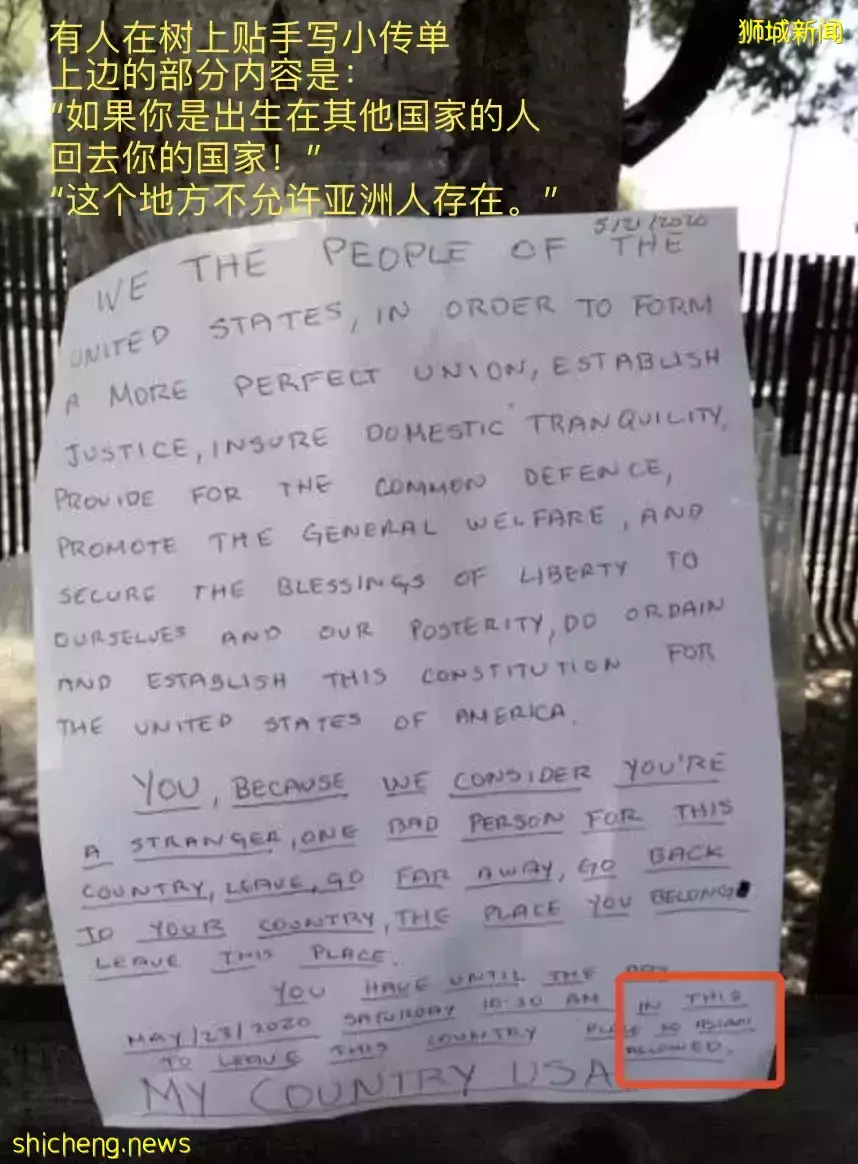 有人在树上贴手写小传单
狮城新闻
上边的部分内容是：
“如果你是出生在其他国家的人
回去你的国家！”
“这个地方不允许亚洲人存在。”
5/21/2020
WE THE PEOPLE OF THE
UNITED STATES, IN ORDER TO FORM
A MORE PERFECT UNION, ESTABLISH
JUSTICE, INSURE DOMESTIC TRANQUILITY,
PROVIDE FOR THE COMMON DEFENCE,
PROMOTE THE GENERAL WELFARE, AND
SECURE THE BLESSINGS OF LIBERTY TO
OURSELVES AND OUR POSTERITY, DO ORDAIN
AND ESTABLISH THIS CONSTITUTION FOR
THE UNITED STATES OF AMERICA.
YOU, BECAUSE WE CONSIDER YOU'RE
A STRANGER, ONE BAD PERSON FOR THIS
COUNTRY, LEAVE, GO FAR AWAY, GO BACK
TO YOUR COUNTRY, THE PLACE YOU BELONG
LEAVE THIS PLACE.
YOU HAVE UNTIL THE DAY
MAY/23/2020 SATURDAY 10:30 AM IN THIS
TO LEAVE THIS COUNTRY PLACE NO ASIANS
ALLOWED.
MY COUNTRY USA
shicheng.news